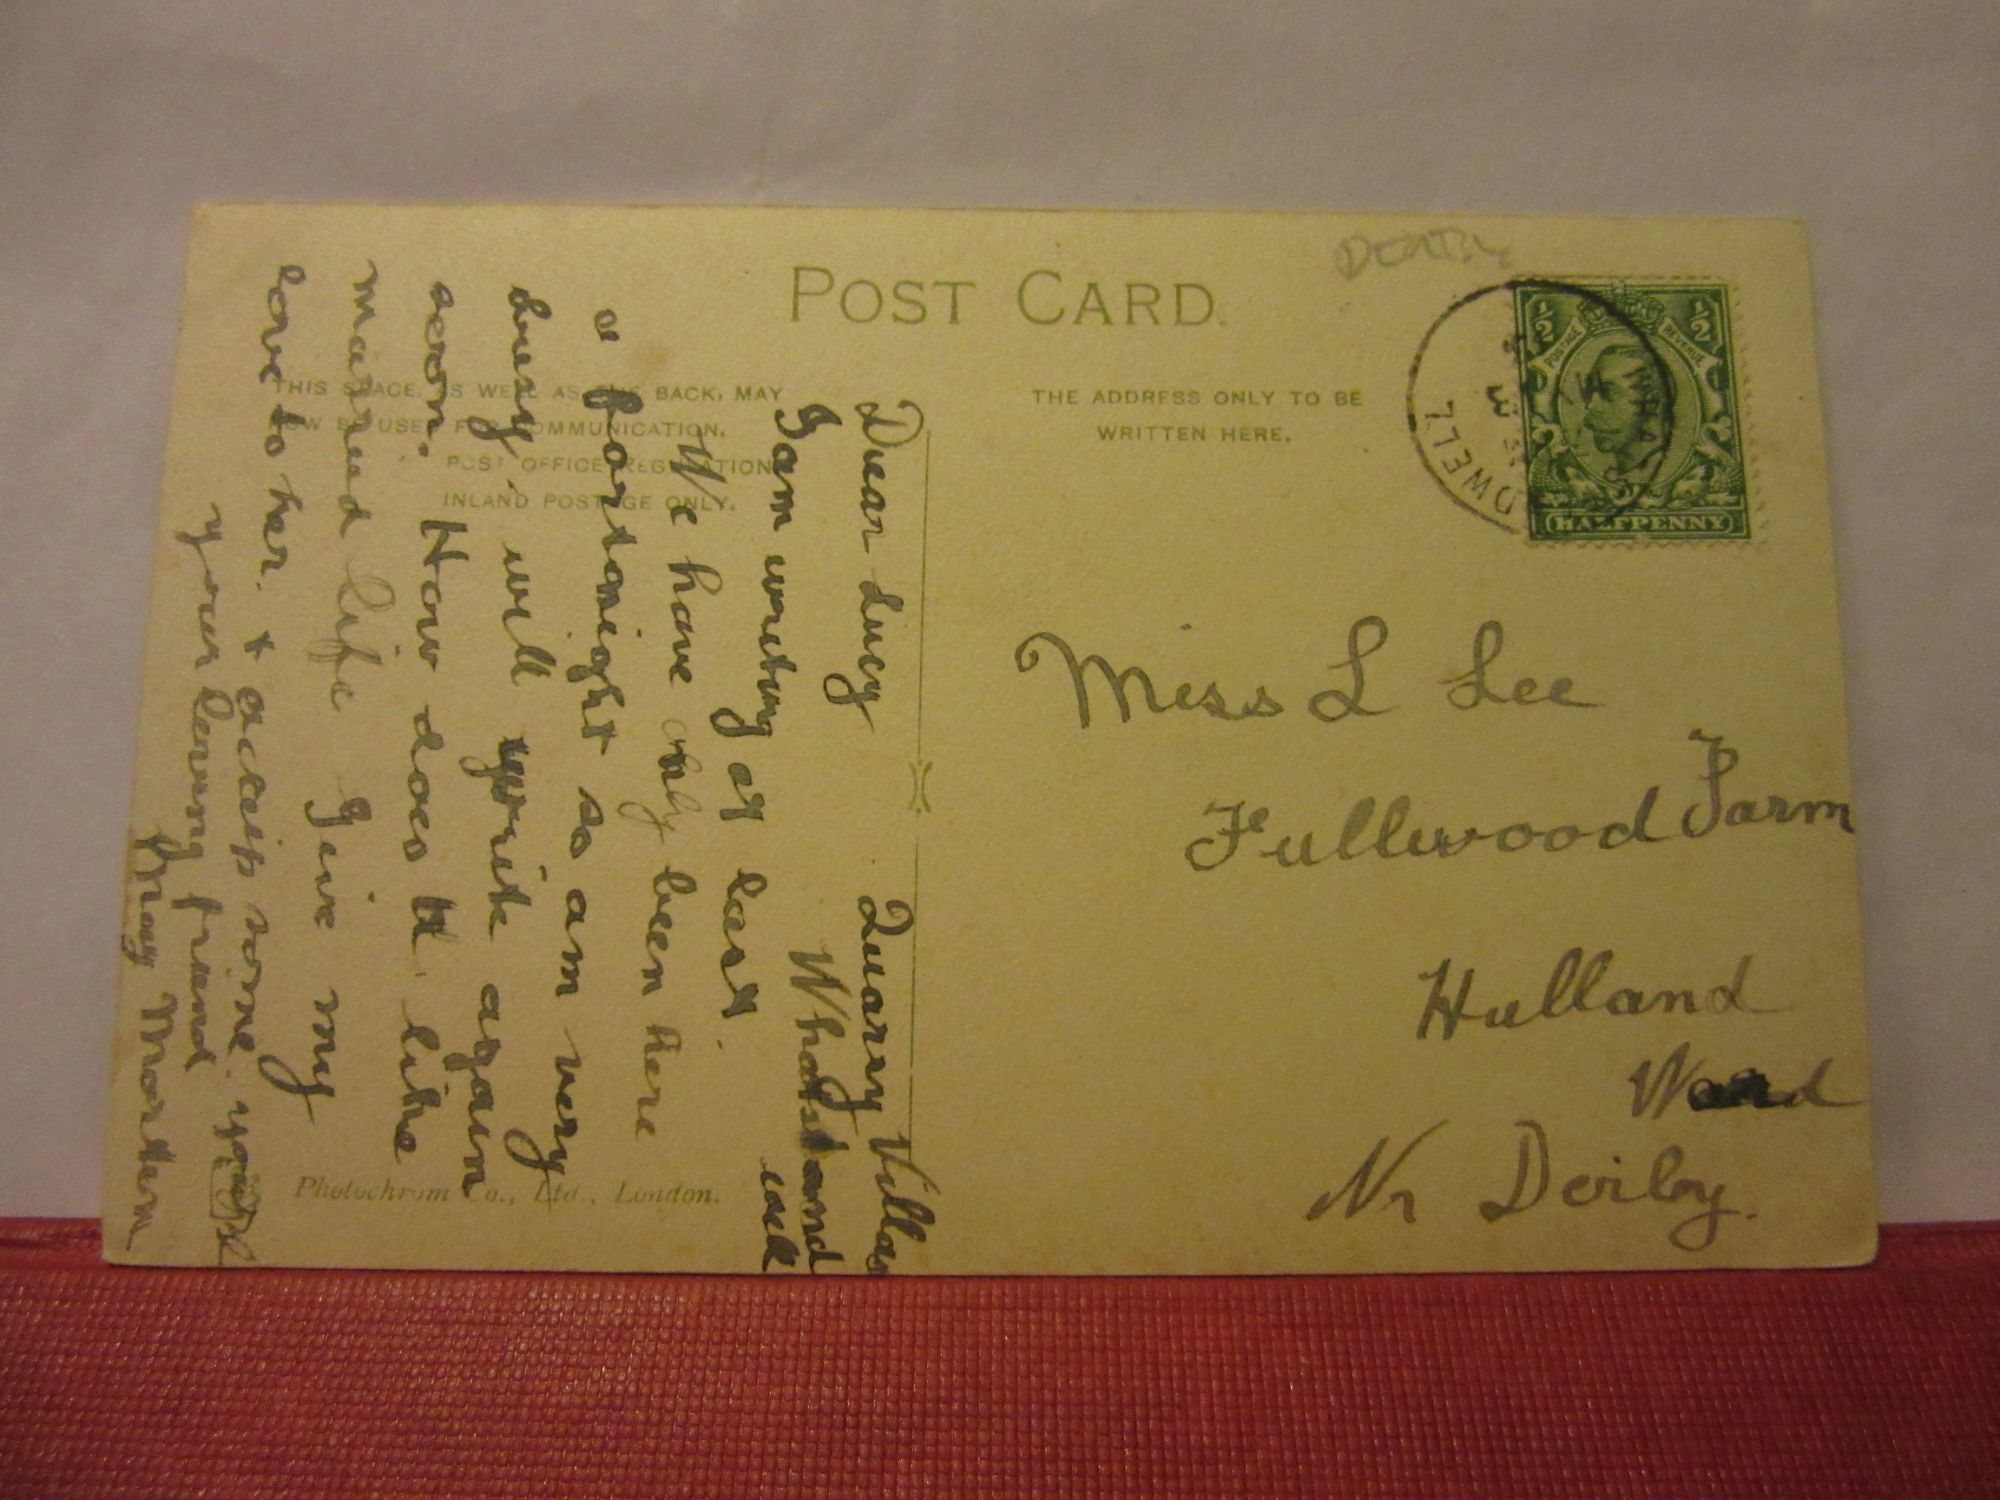 POST CARD.
THIS SPACE, AS WELL AS THE BACK, MAY
NOW BE USED FOR COMMUNICATION.
POST OFFICE REGULATION.
INLAND POSTAGE ONLY.
THE ADDRESS ONLY TO BE
WRITTEN HERE.
½ ½
POSTAGE REVENUE
HALFPENNY
Miss L Lee
Fullwood Farm
Hulland
Ward
Nr Derby.
Quarry Villas
Whatstand
well
Dear Lucy
I am writing at last.
We have only been here
a fortnight so am very
busy. will write again
soon. How does M like
married life Give my
love to her. & accept some
your loving friend
May Morten
Photochrom Co., Ltd., London.